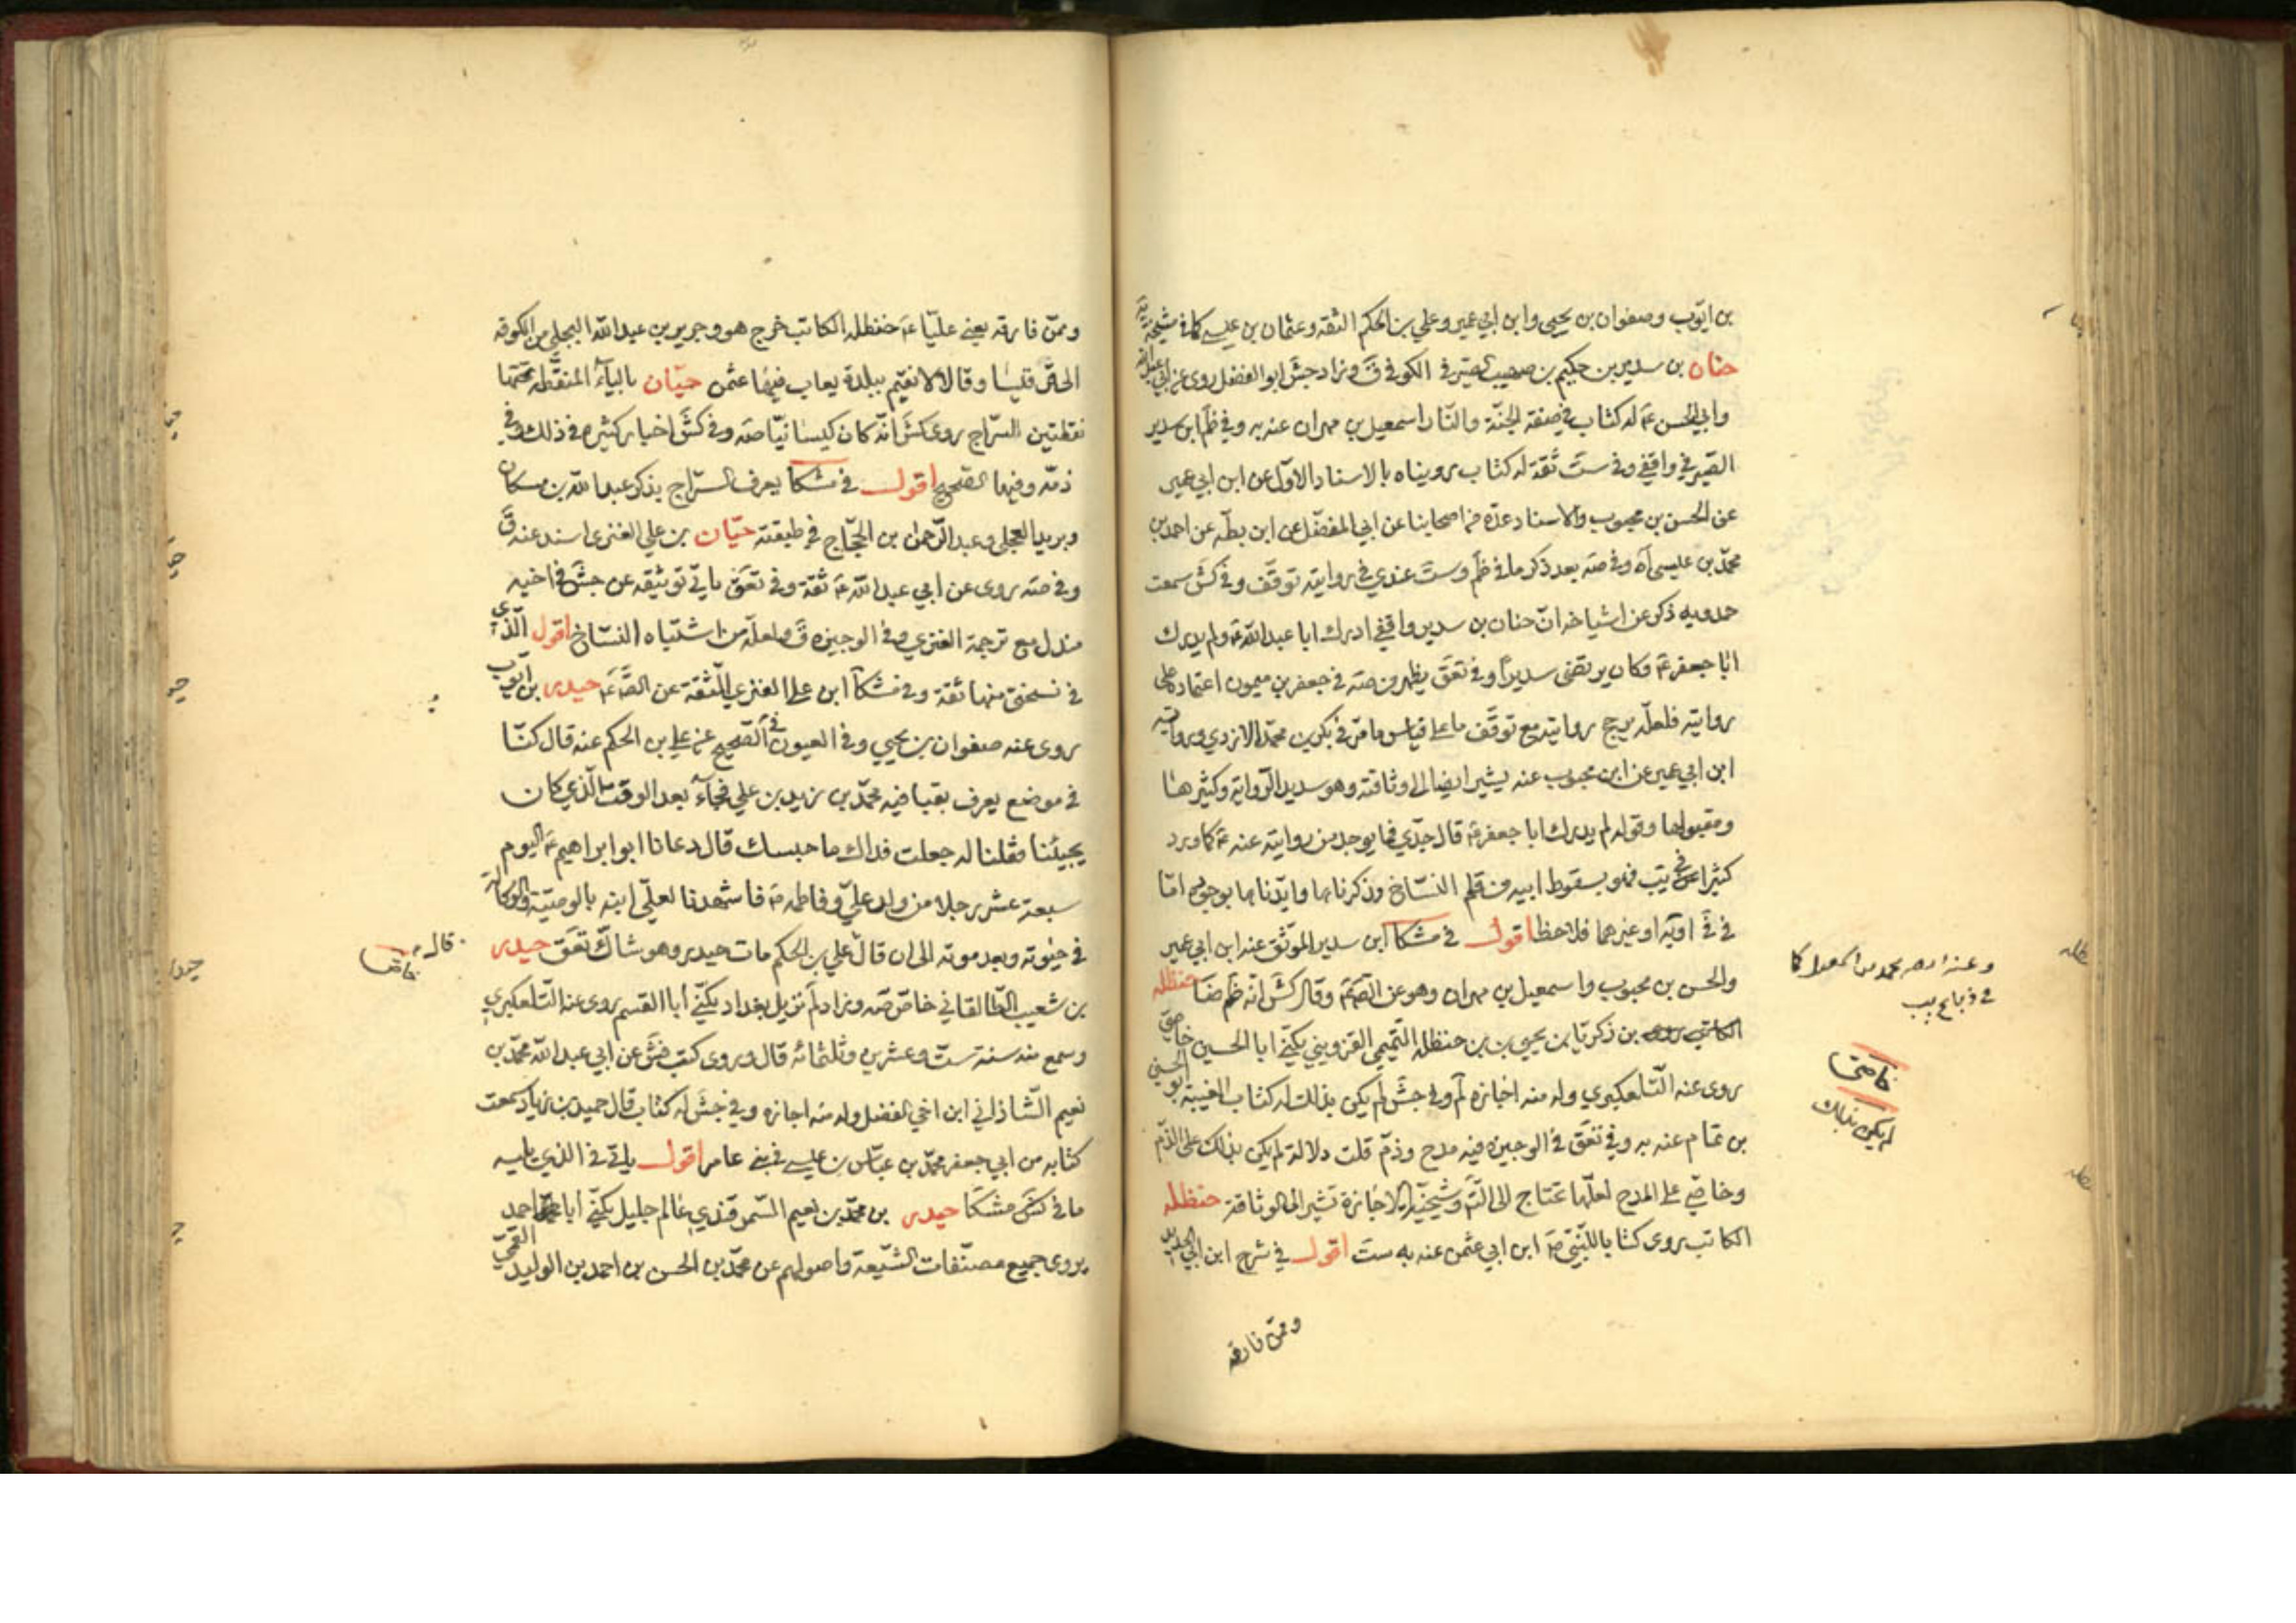 بن ايّوب وصفوان بن يحيى وابن ابي عمير وعلي بن الحكم الثقة وعثمان بن عيسى كما في مشيخة يه
حنان بن سدير بن حكيم بن صهيب الصيرفي الكوفي ق وزاد جش ابو الفضل روى عن ابي عبد الله
وابي الحسن ع له كتاب في صفة الجنّة والنّار اسمعيل بن مهران عنه به وفي ظم ابن سدير
الصيرفي واقفي وفي ست ثقة له كتاب رويناه بالاسناد الاوّل عن ابن ابي عمير
عن الحسن بن محبوب والاسناد عدّة من اصحابنا عن ابي المفضّل عن ابن بطّه عن احمد بن
محمّد بن عيسى آه وفي صه بعد ذكر ما في ظم وست عندي في روايته توقّف وفي كش سمعت
حمدويه ذكر عن اشياخه انّ حنان بن سدير واقفي ادرك ابا عبد الله ع ولم يدرك
ابا جعفر ع وكان يرتضى سديرًا وفي تعق يظهر من صه في جعفر بن ميمون اعتماده على
روايته فلعلّه يرجح روايته مع توقّف ما على قياس ما مرّ في بكر بن محمّد الازدي ورواية
ابن ابي عمير عن ابن محبوب عنه يشير ايضا الى وثاقته وهو سديد الرّواية وكثيرها
ومقبولها وقوله لم يدرك ابا جعفر ع قال جدّي فما يوجد من روايته عنه ع كما ورد
كثيرا في يب فهو بسقوط ابيه من قلم النسّاخ وذكرناها وايّدناها بوجوه امّا
في في او يه او غيرهما فلاحظ اقول في مشكا ابن سدير الموثّق عنه ابن ابي عمير
والحسن بن محبوب واسمعيل بن مهران وهو عن الصّم ع وقال كش انه ظم ضا حنظله
الكاتب روى بن زكريّا بن يحيى بن حنظله التّميمي القزويني يكنّى ابا الحسين خاصّي
روى عنه التّلعكبري وله منه اجازة لم وفي جش لم يكن بذلك له كتاب الغيبة ابو الحسن
بن تمام عنه به وفي تعق في الوجيزه فيه مدح وذمّ قلت دلالة لم يكن بذلك على الذّم
وخاصّي على المدح لعلّها تحتاج الى التّم وشيخيّة الاجازة تشير الى الوثاقة حنظله
الكاتب روى كتابا للنّبي ص ابن ابي عثمن عنه به ست اقول في شرح ابن ابي الحديد
وممّن فارقه
وعنه
في ذبايح يب
خاصّي
لم يكن بذلك
وممّن فارقه يعني عليّا ع حنظله الكاتب خرج هو وجرير بن عبد الله البجلي من الكوفه
الى قرقيسا وقالا لا نقيم ببلدة يعاب فيها عثمن حيّان بالياء المنقّطه تحتها
نقطتين السرّاج روى كش انه كان كيسانيّا صه وفي كش اخبار كثيره في ذلك وفي
ذمّه وفيها الصّحيح اقول في مشكا يعرف السرّاج بذكر عبد الله بن مسكان
وبريد العجلي وعبد الرّحمن بن الحجّاج في طبقته حيّان بن علي العنزي اسند عنه ق
وفي صه روى عن ابي عبد الله ع ثقة وفي تعق ياتي توثيقه عن جش في اخيه
مندل مع ترجمة العنزي وفي الوجيزه ق ولعلّه من اشتباه النسّاخ اقول الّذي
في نسختي منها ثقة وفي مشكا ابن علي العنزي الثقة عن الصّ ع حيدر بن ايّوب
روى عنه صفوان بن يحيى وفي العيون في الصّحيح عن علي بن الحكم عنه قال كنّا
في موضع يعرف بقبا فيه محمّد بن زيد بن علي فجآء بعد الوقت الّذي كان
يجيئنا فقلنا له جعلت فداك ما حبسك قال دعانا ابو ابراهيم ع اليوم
سبعة عشر رجلا من ولد عليّ وفاطمه ع فاشهدنا لعليّ ابنه بالوصيّة والوكالة
في حيوته وبعد موته الى ان قال علي بن الحكم مات حيدر وهو شاكّ تعق حيدر
بن شعيب الطّالقاني خاصّ صه وزاد لم نزيل بغداد يكنّى أبا القسم روى عنه التّلعكبري
وسمع منه سنة ستّ وعشرين وثلثمائه قال وروى كتب فش عن ابي عبد الله محمّد بن
نعيم الشّاذاني ابن اخي الفضل وله منه اجازه وفي جش له كتاب قال حميد بن زياد سمعت
كتابه من ابي جعفر محمّد بن عبّاس بن عيسى في بني عامر اقول ياتي في الذي يليه
ما في كش مشكا حيدر بن محمّد بن نعيم السّمرقندي عالم جليل يكنّى أبا احمد
يروى جميع مصنّفات الشّيعة واصولهم عن محمّد بن الحسن بن احمد بن الوليد القمّي
قال
خاصّا
حيدر